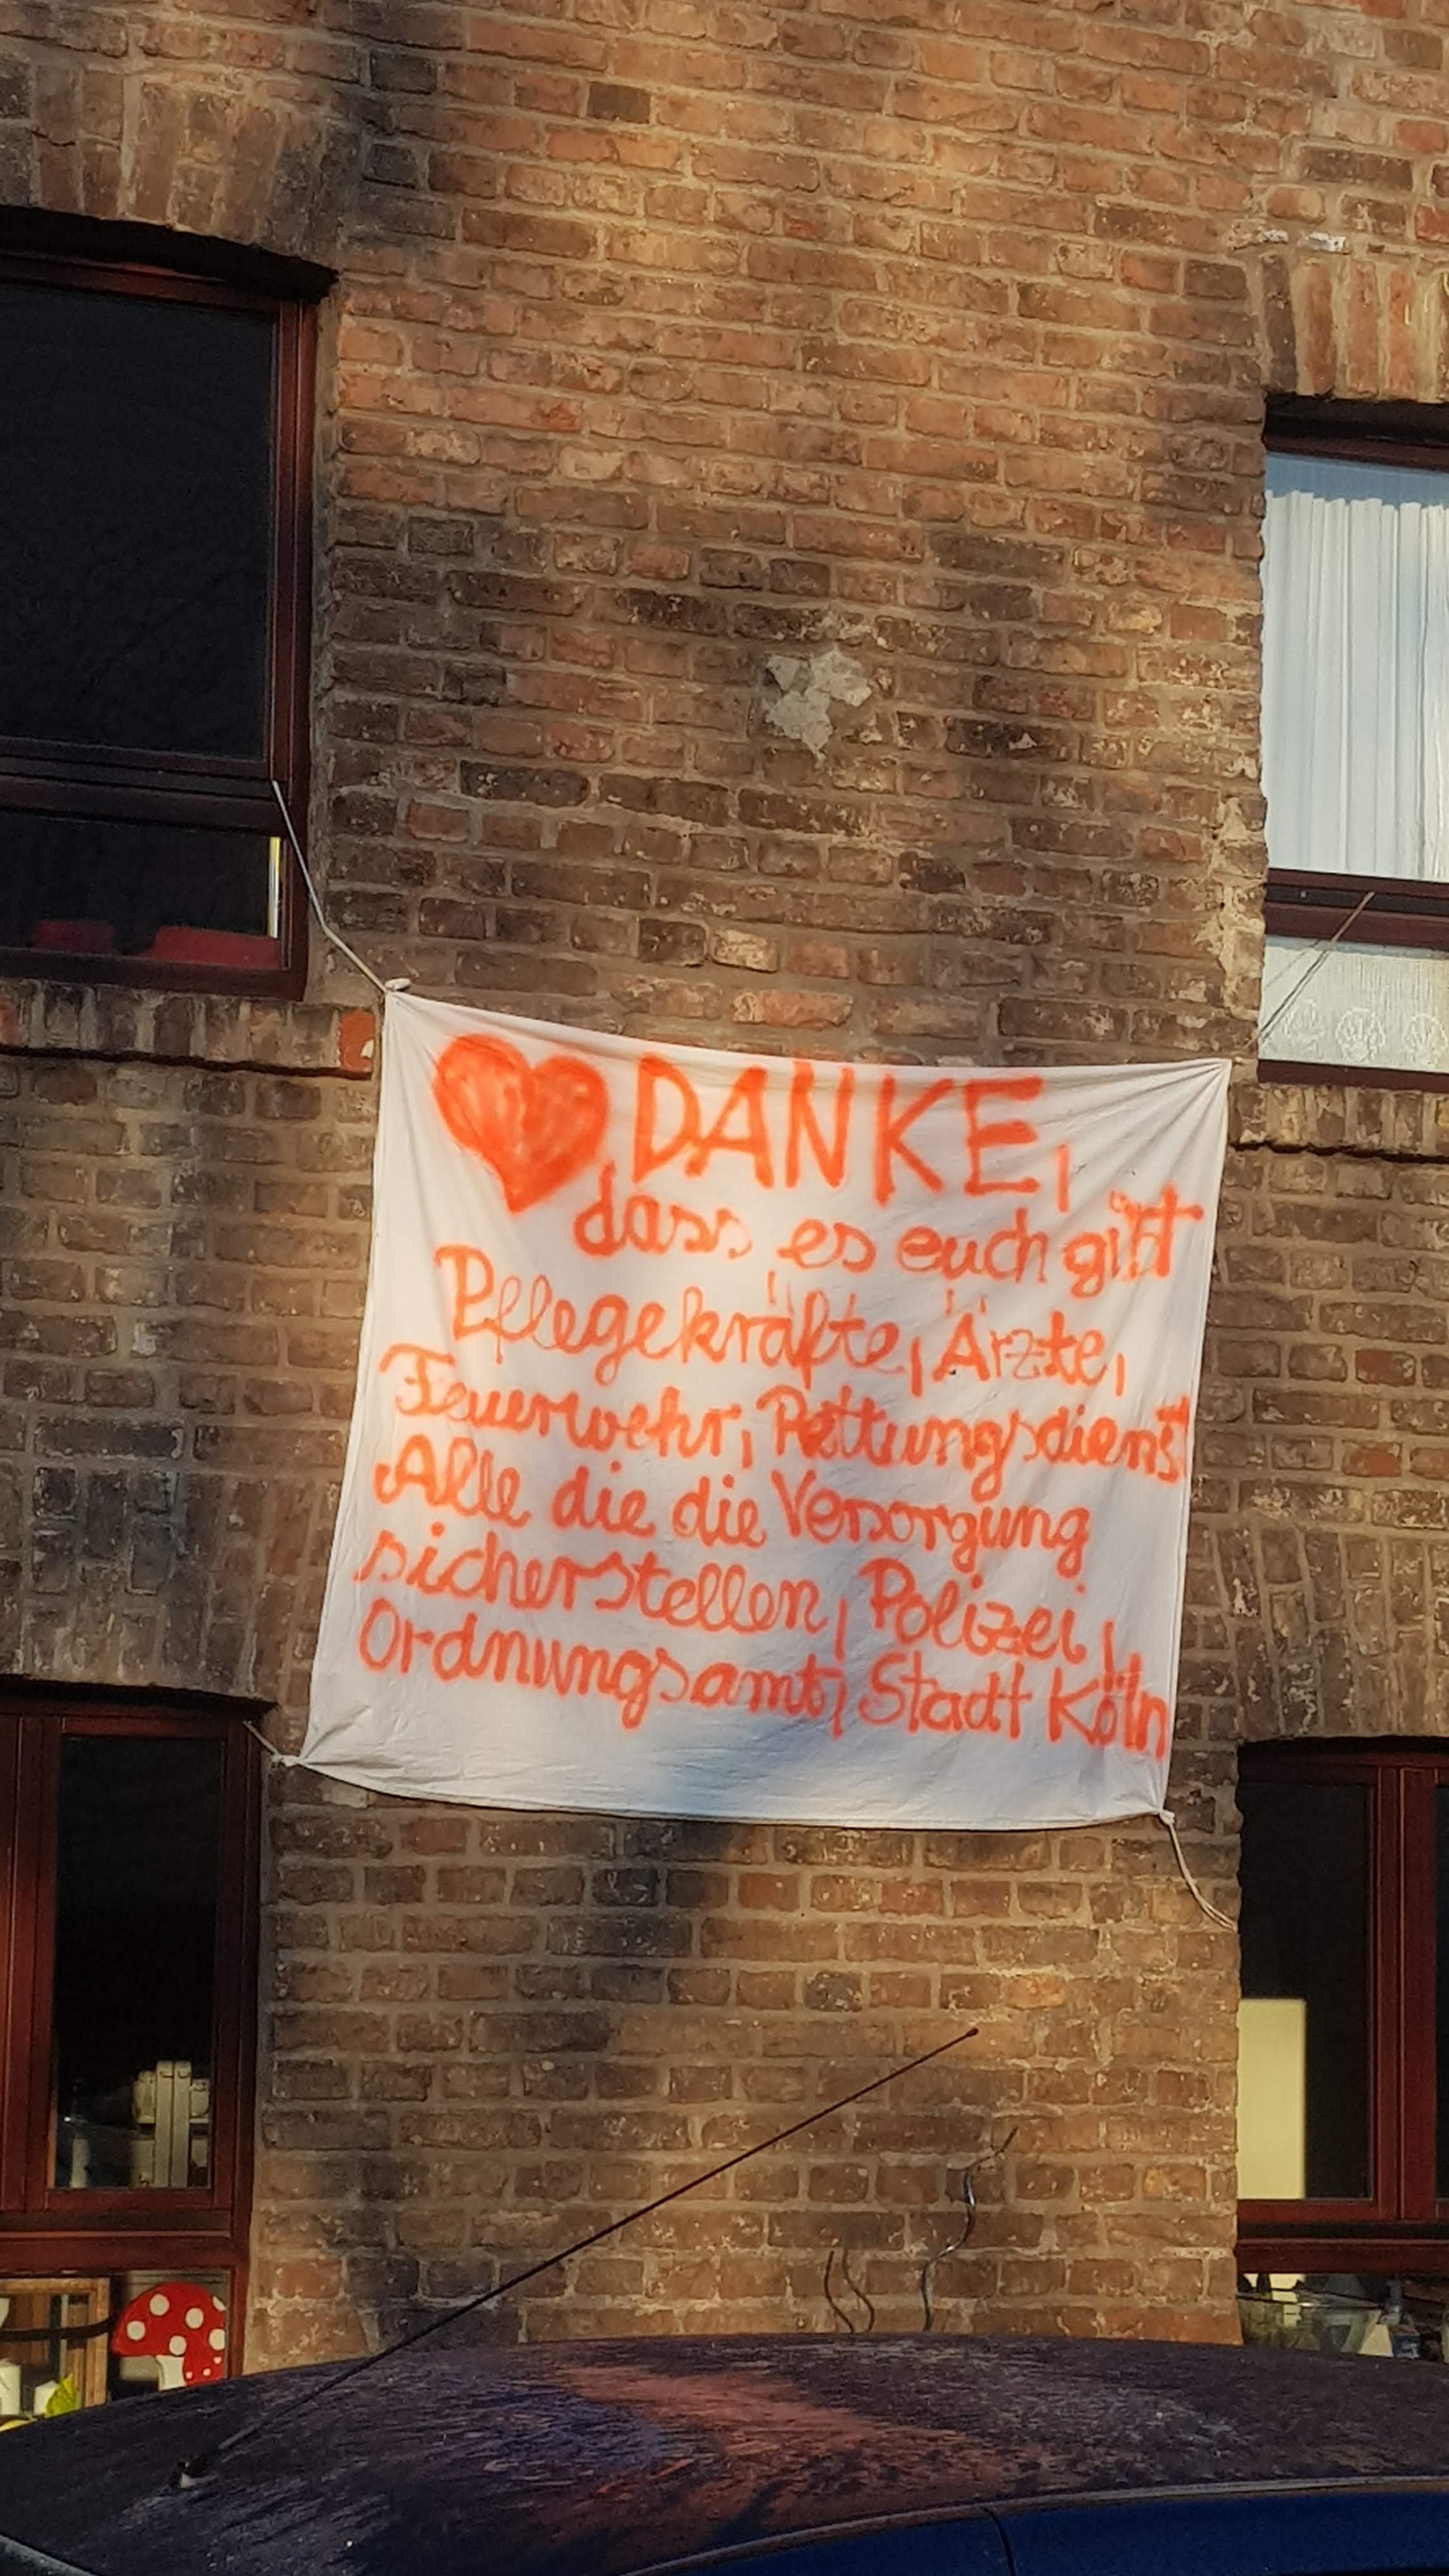 DANKE,
dass es euch gibt
Pflegekräfte, Ärzte,
Feuerwehr, Rettungsdienst
Alle die die Versorgung
sicherstellen, Polizei,
Ordnungsamt, Stadt Köln